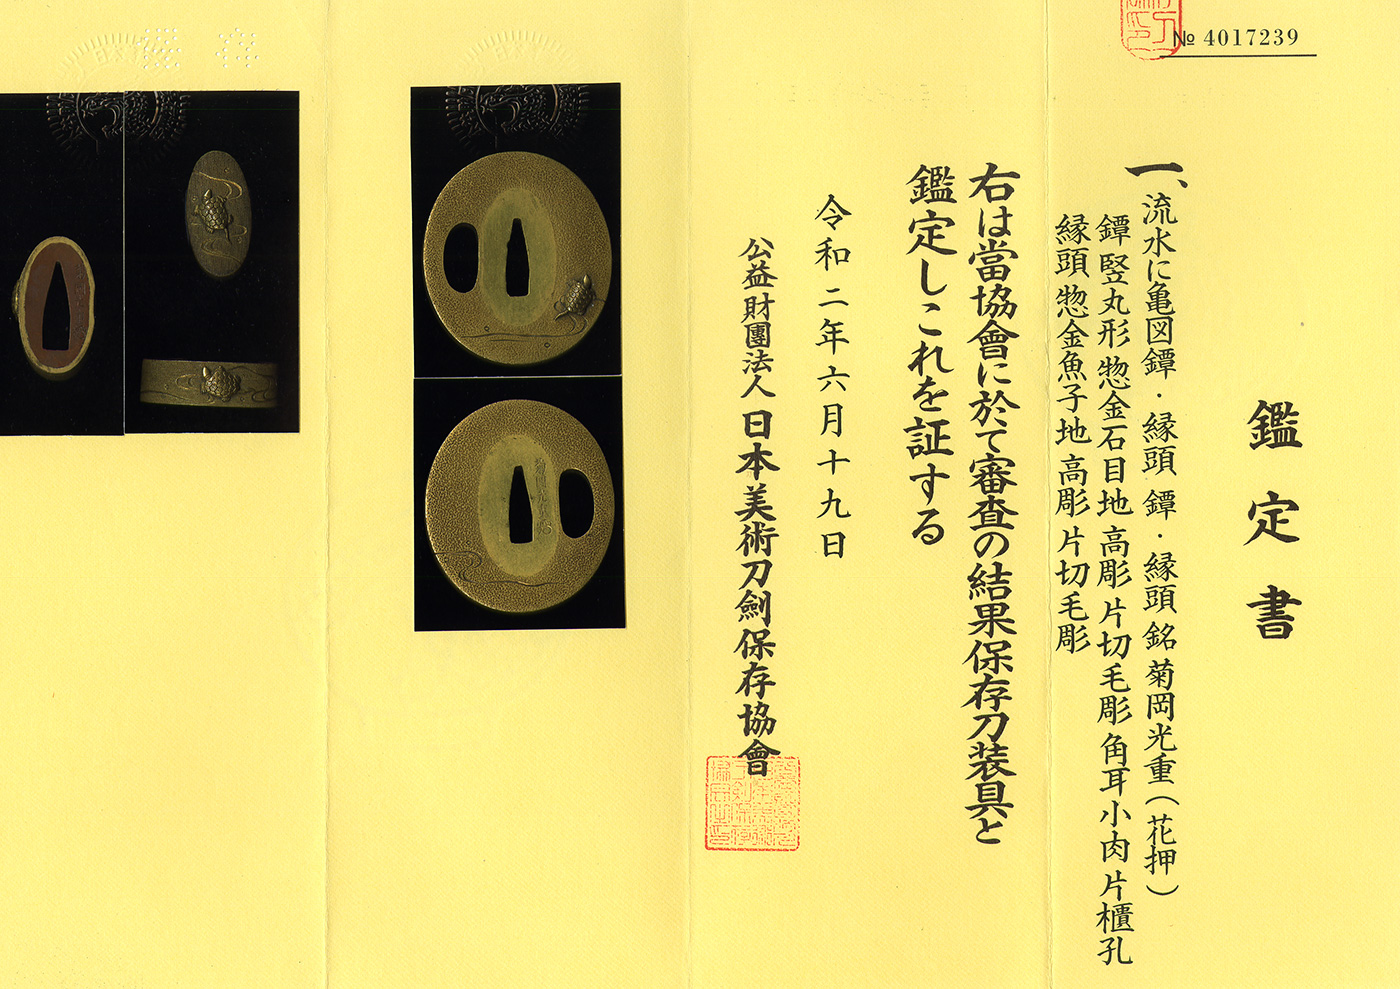 № 4017239
鑑定書
一、流水に亀図鐔・縁頭 鐔・縁頭 銘 菊岡光重（花押）
鐔 竪丸形 惣金石目地 高彫 片切毛彫 角耳小肉 片櫃孔
縁頭 惣金魚子地 高彫 片切毛彫
右は當協會に於て審査の結果保存刀装具と
鑑定しこれを証する
令和二年六月十九日
公益財團法人 日本美術刀劍保存協會